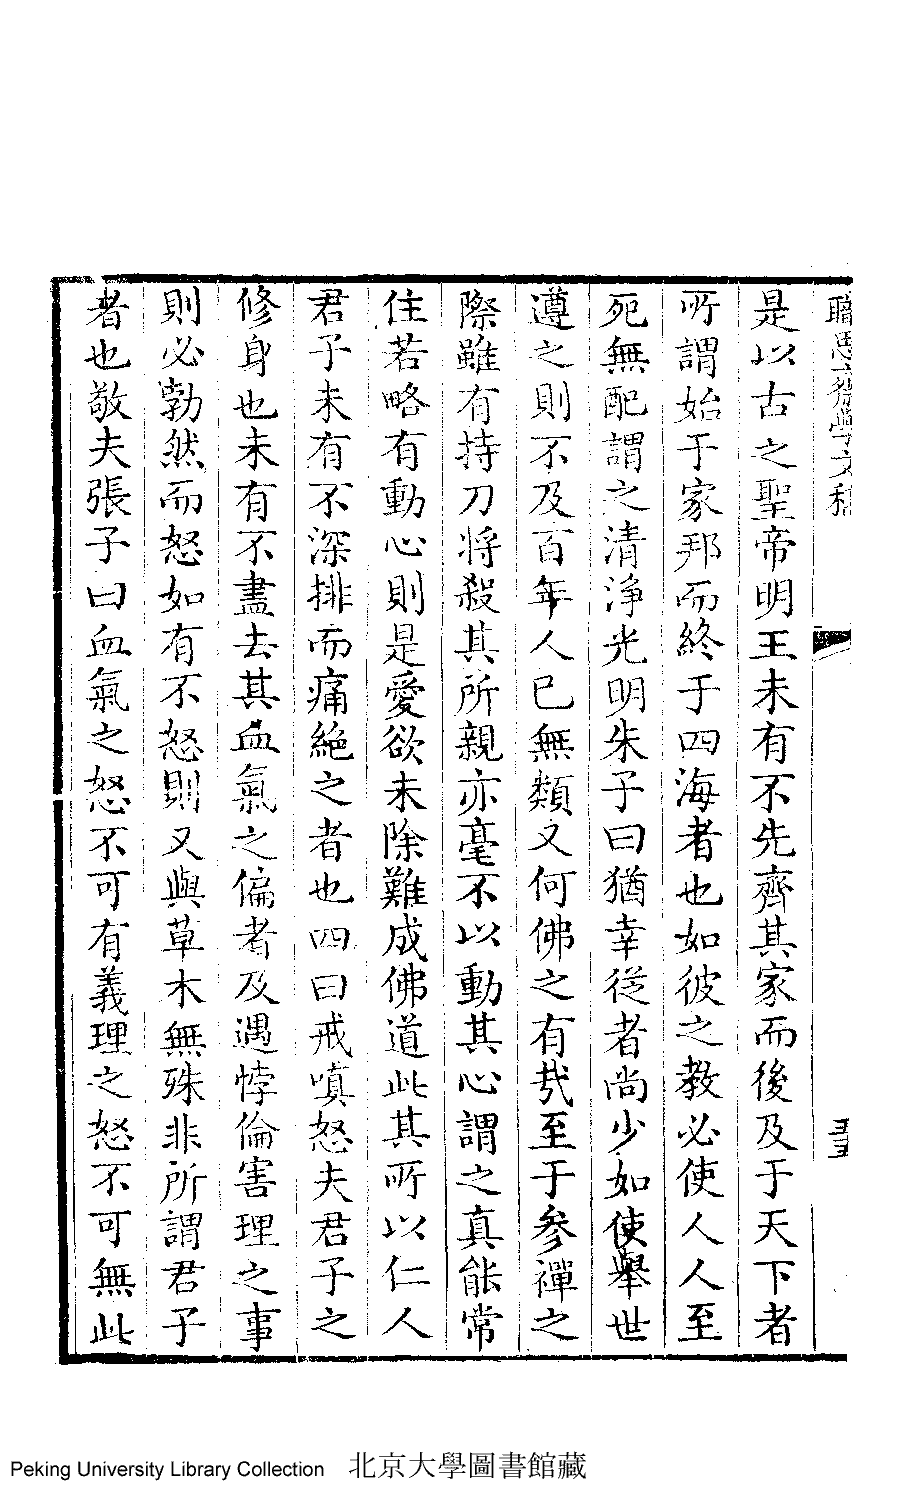 是以古之聖帝明王未有不先齊其家而後及于天下者
所謂始于家邦而終于四海者也如彼之教必使人人至
死無配謂之清淨光明朱子曰猶幸從者尚少如使舉世
遵之則不及百年人已無類又何佛之有哉至于參禪之
際雖有持刀將殺其所親亦毫不以動其心謂之真能常
住若略有動心則是愛欲未除難成佛道此其所以仁人
君子未有不深排而痛絶之者也四曰戒嗔怒夫君子之
修身也未有不盡去其血氣之偏者及遇悖倫害理之事
則必勃然而怒如有不怒則又與草木無殊非所謂君子
者也敬夫張子曰血氣之怒不可有義理之怒不可無此
Peking University Library Collection 北京大學圖書館藏